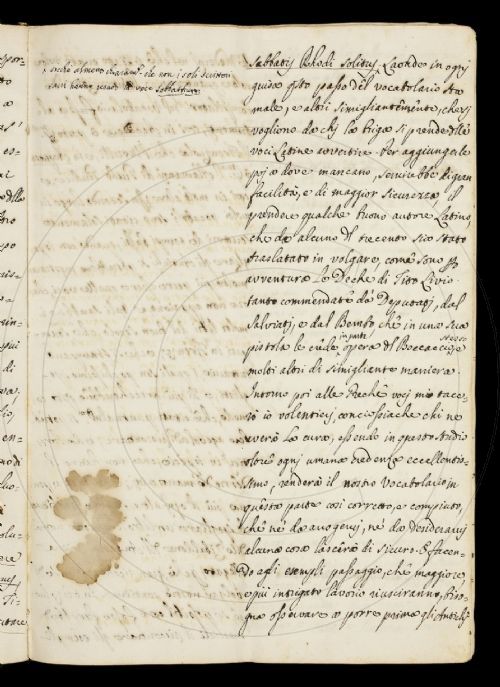 che non i soli scrittori
voce Sabbatizare
Sabbatij Rhodi Solitus. Laonde in ogni
guisa questo passo del vocabolario sta
male, e altri simigliantemente, che si
vogliono da chi la briga si prende delle
voci Latine avvertire. Per aggiungerle
poja dove mancano, sarebbe di gran
facilità, e di maggior sicurezza il
prendere qualche buono autore Latino,
che da alcuno del trecento sia stato
traslatato in volgare, come sono per
avventura le Deche di Tito Livio
tanto commendate da' Deputati, dal
Salviati, e dal Bembo, che in una sua
pistola le crede in parte opera del Boccaccio stesso, e
molti altri di simigliante maniera.
Intorno poi alle Greche voci mi tace-
rò io volentieri, conciossiache chi ne
averà la cura, essendo in questo studio
oltre ogni umana credenza eccellentis-
simo, renderà il nostro Vocabolario in
questa parte così corretto, e compiuto,
che né da aggiugnervi, né da desiderarvi
alcuna cosa lascerà di sicuro. E facen-
do agli esempli passaggio, che maggiore
e più intrigato lavorio riusciranno, biso-
gna osservare o porre prima gli Antichi,